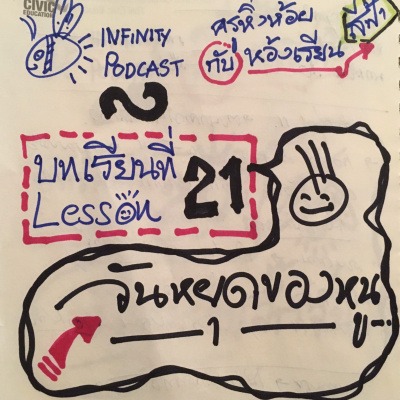 CIVIC
EDUCATION
INFINITY
PODCAST
ครูหิ่งห้อย
กับ ห้องเรียน
สีฟ้า
บทเรียนที่
Lesson
21
วันหยุดของหนู...